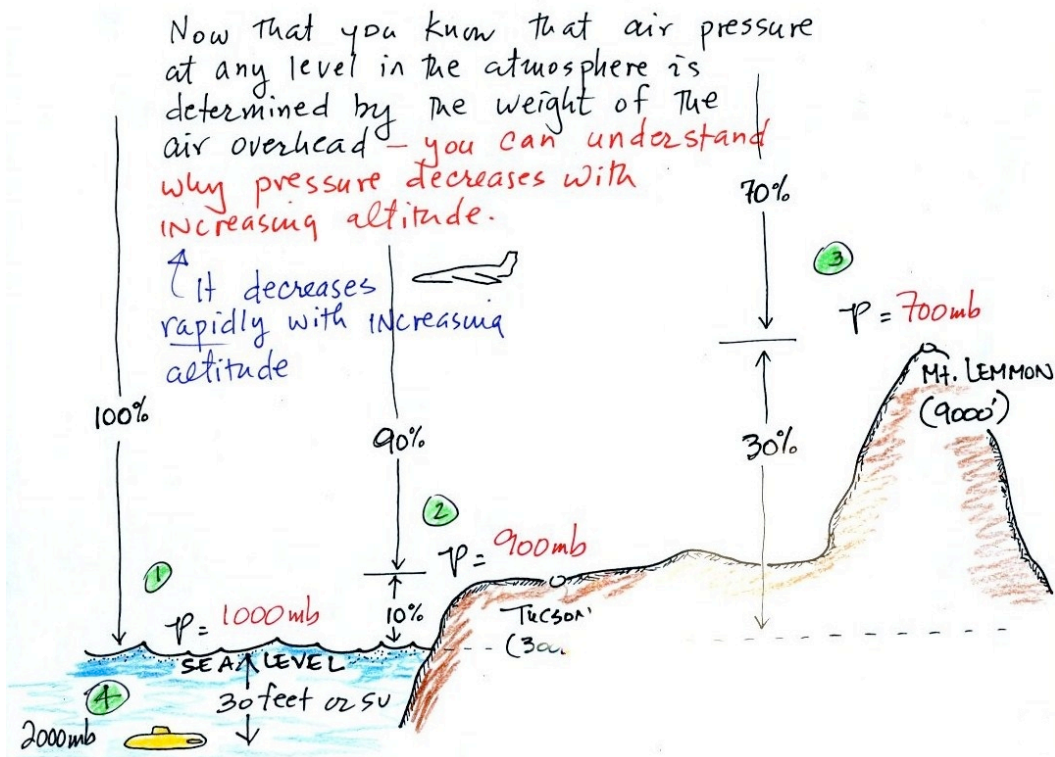 Now that you know that air pressure
at any level in the atmosphere is
determined by the weight of the
air overhead – you can understand
why pressure decreases with
increasing altitude.
It decreases
rapidly with increasing
altitude
100%
90%
10%
70%
30%
1
P = 1000mb
SEA LEVEL
2
P = 900mb
TUCSON
3
P = 700mb
Mt. LEMMON
(9000')
4
2000mb
30 feet or so